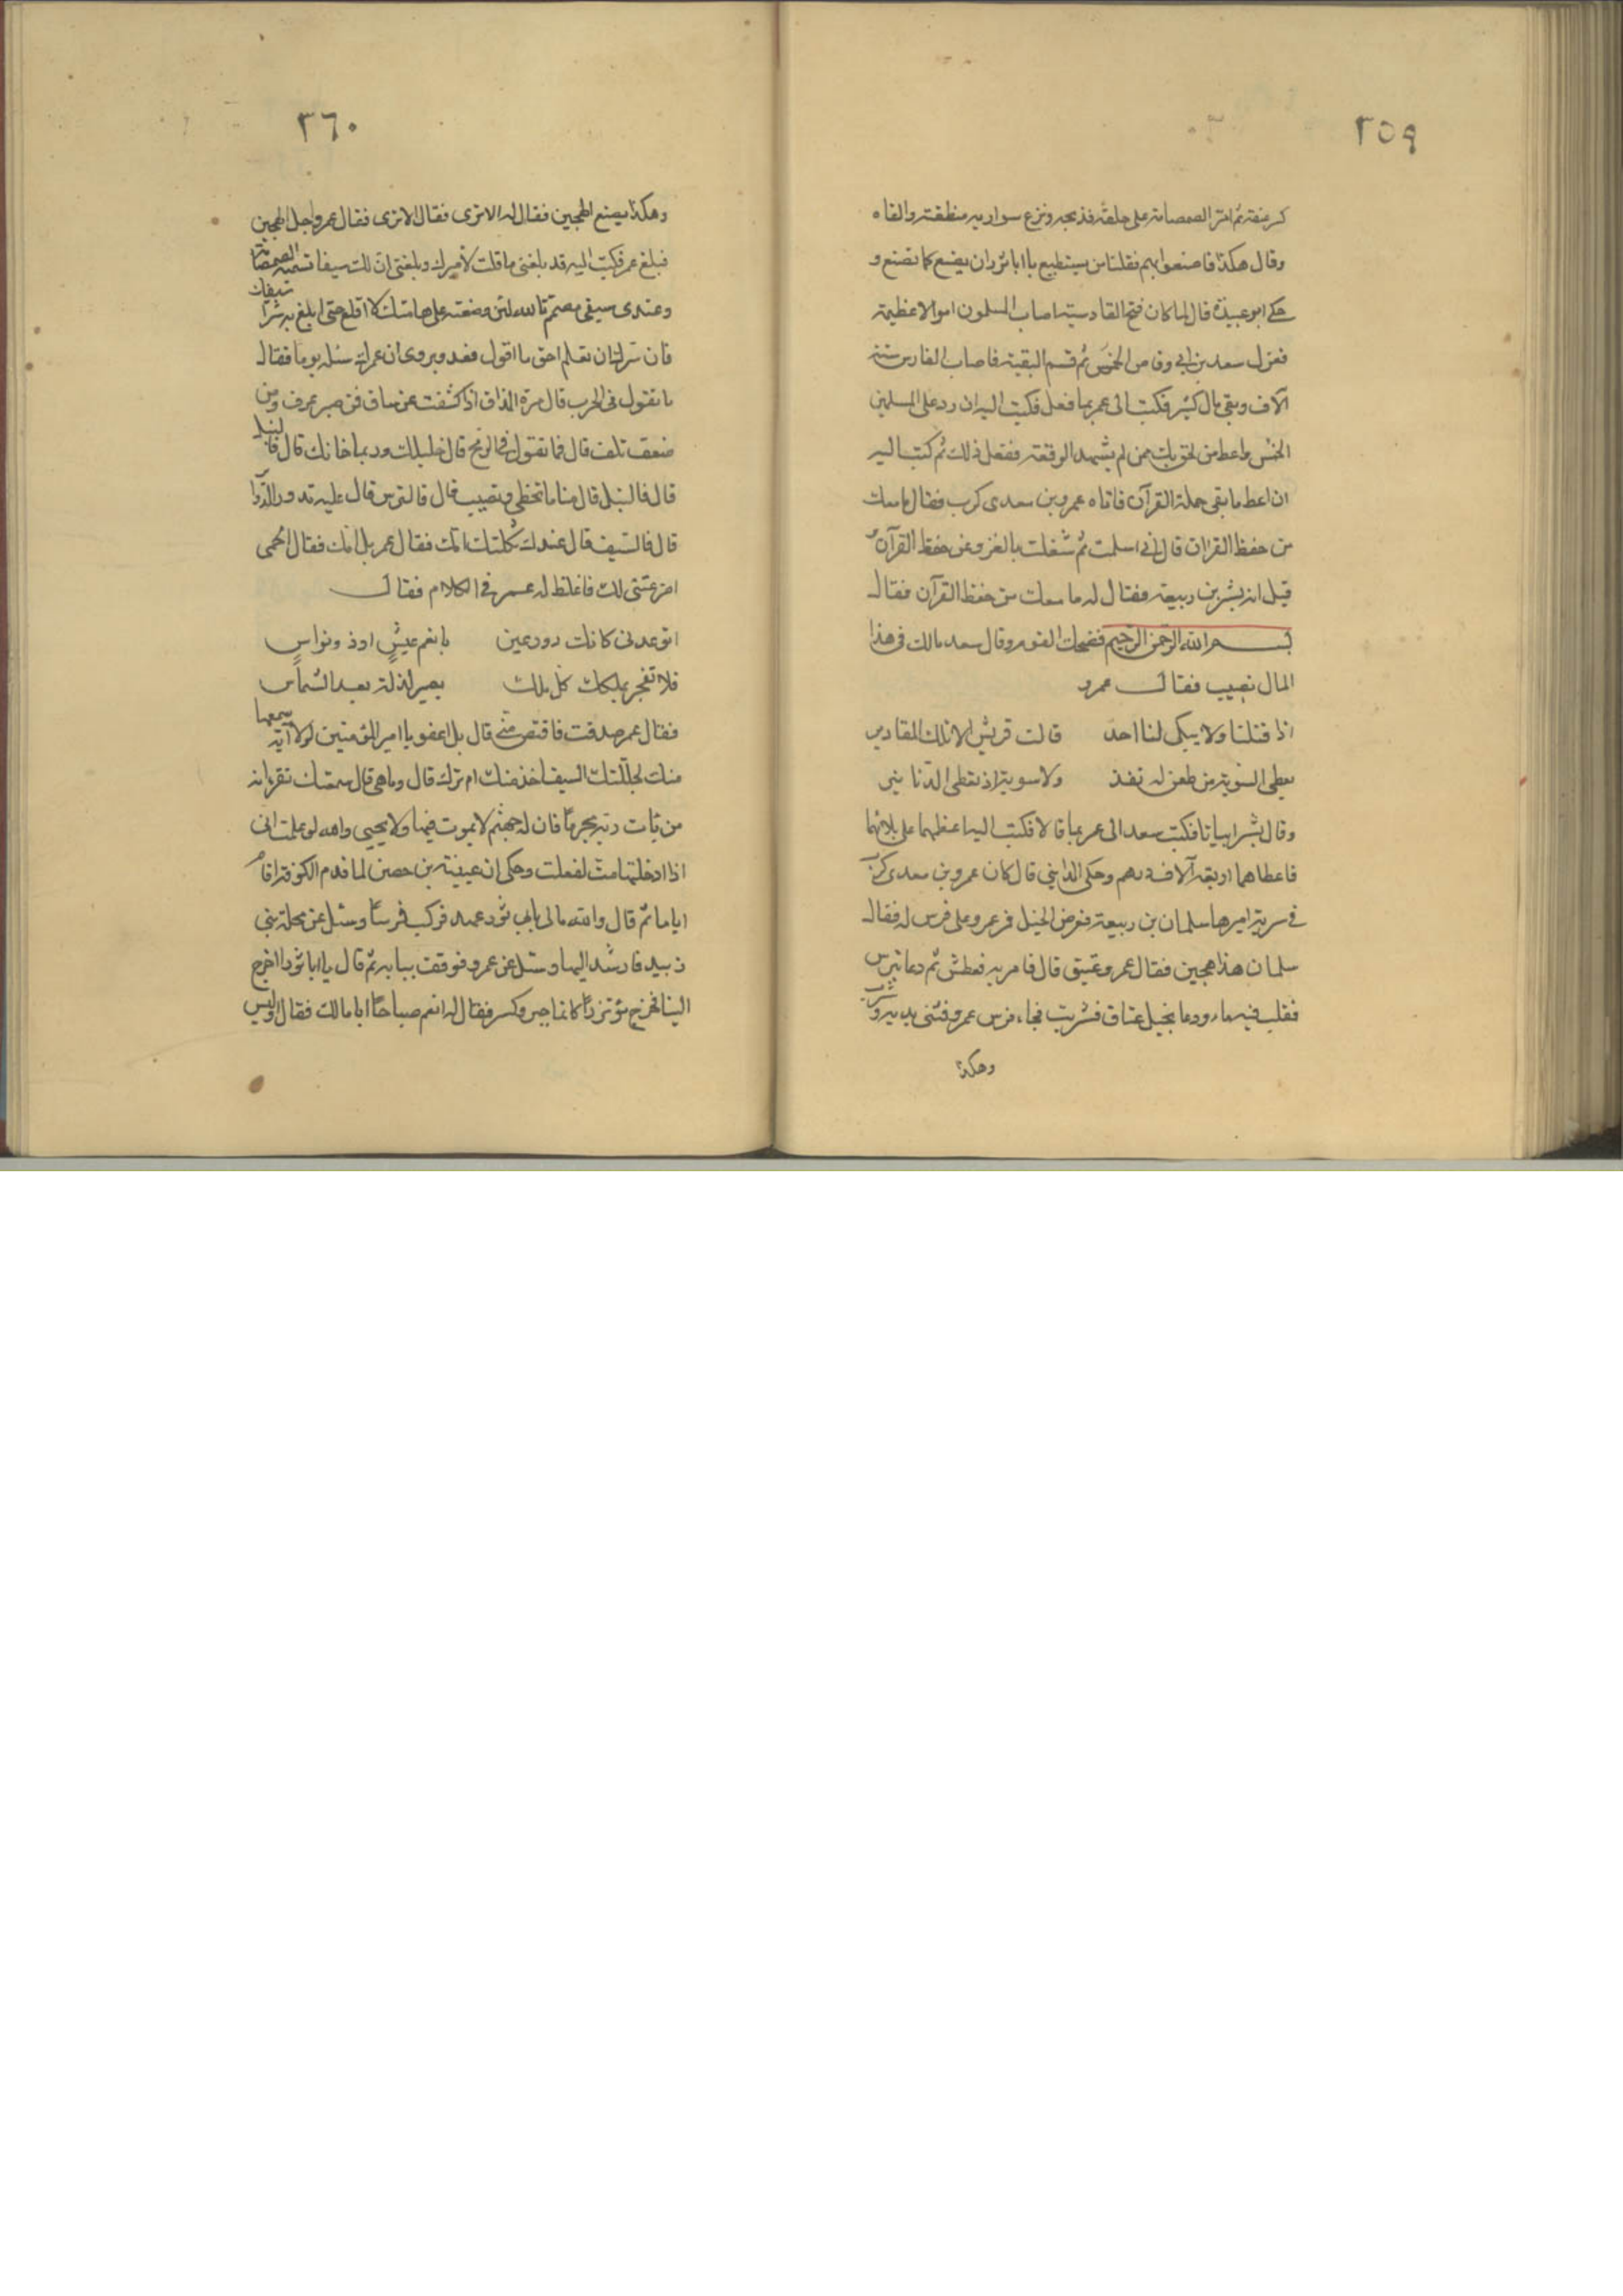 ٣٥٩
كسر عنقه ثم امرّ الصمصامة على حلقه فذبحه ونزع سواريه ومنطقته والقاه
وقال هكذا فاصنعوا بهم فقلنا من يستطيع يا ابا ثور ان يصنع كما تصنع و
حكى ابو عبيدة قال لما كان فتح القادسية اصاب المسلمون اموالا عظيمة
فعزل سعد بن ابى وقاص الخمس ثم قسم البقية فاصاب الفارس ستة
آلاف وبقى مال كثير فكتب الى عمر بما فعل فكتب اليه ان رد على المسلمين
الخمس واعط من لحق بك ممن لم يشهد الوقعة ففعل ذلك ثم كتب اليه
ان اعط ما بقى حملة القرآن فاتاه عمرو بن معدى كرب فقال ما معك
من حفظ القران قال انى اسلمت ثم شغلت بالغزو عن حفظ القرآن و
قيل انه بشر بن ربيعة فقال له ما معك من حفظ القرآن فقال
بسم الله الرحمن الرحيم فضحك القوم وقال سعد مالك فى هذا
المال نصيب فقال عمرو
اذا قتلنا ولا يبكى لنا احد قالت قريش الا تلك المقادير
يعطى السوية من طعن له نفذ ولا سوية اذ يعطى الدنانير
وقال بشر ابياتا فكتب سعد الى عمر بما قالا فكتب اليه اعطهما على بلائهما
فاعطاهما اربعة آلاف درهم وحكى المداينى قال كان عمرو بن معدى كرب
فى سرية اميرها سلمان بن ربيعة فعرض الخيل فمر عمرو على فرس له فقال
سلمان هذا هجين فقال عمرو عتيق قال فامر به فعطش ثم دعا بترس
فقلب فيه ماء ودعا بخيل عتاق فشربت فجاء فرس عمرو فثنى يديه وشرب
وهكذا
٣٦٠
وهكذا يصنع الهجين فقال له الا ترى فقال الا ترى فقال عمرو اجل الهجين
فبلغ عمر فكتب اليه قد بلغنى ما قلت لأميرك وبلغنى ان لك سيفا تسميه الصمصامة
وعندى سيفى مصمم تالله لئن وضعته على هامتك لا اقلع حتى ابلغ به شراسيفك
فان سرك ان تعلم احق ما اقول فعد ويروى ان عمر سئله يوما فقال
ما تقول فى الحرب قال مرة المذاق اذا كشفت عن ساق فمن صبر عرف ومن
ضعف تلف قال فما تقول فى الرمح قال خليلك وربما خانك قال فالنبل
قال فالنبل قال منايا تخطى وتصيب قال فالترس قال عليه تدور الدوائر
قال فالسيف قال عندك ثكلتك امك فقال عمر بل امك فقال الحمى
اضرعتنى لك فاغلظ له عمر فى الكلام فقال
اتوعدنى كانك ذو رعين بانعم عيشٍ او ذو نواسٍ
فلا تفخر بملكك كل ملك يصير لذلة بعد الشماس
فقال عمر صدقت فاقتص منى قال بل اعفو يا امير المؤمنين لولا آية سمعها
منك لجللتك السيف اخذ منك ام ترك قال وما هى قال سمعتك تقرء انه
من يأت ربه مجرمًا فان له جهنم لا يموت فيها ولا يحيى والله لو علمت انى
اذا ادخلتها مت لفعلت وحكى ان عيينة بن حصن لما قدم الكوفة اقام
اياما ثم قال والله مالى بابى ثور عهد فركب فرسًا وسئل عن محلة بنى
زبيد فارشد اليها وسئل عن عمرو فوقف ببابه ثم قال يا ابا ثور اخرج
الينا فخرج مؤتزرًا كانما جبر وكسر فقال له انعم صباحًا ابا مالك فقال اوليس